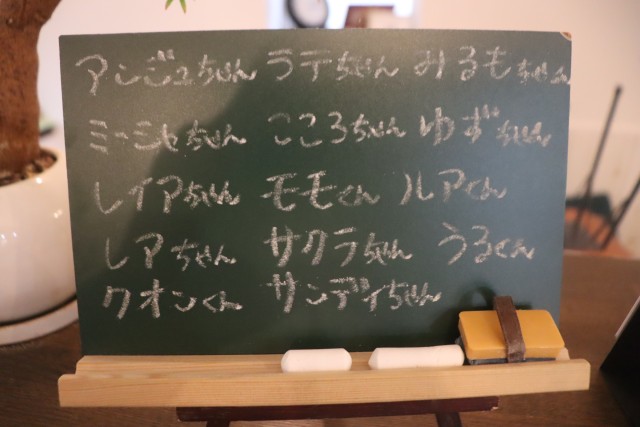 アンジュちゃん ラテちゃん みるもちゃん
ミーシャちゃん こころちゃん ゆずちゃん
レイアちゃん モモくん ルアくん
レアちゃん サクラちゃん うるくん
クオンくん サンディちゃん